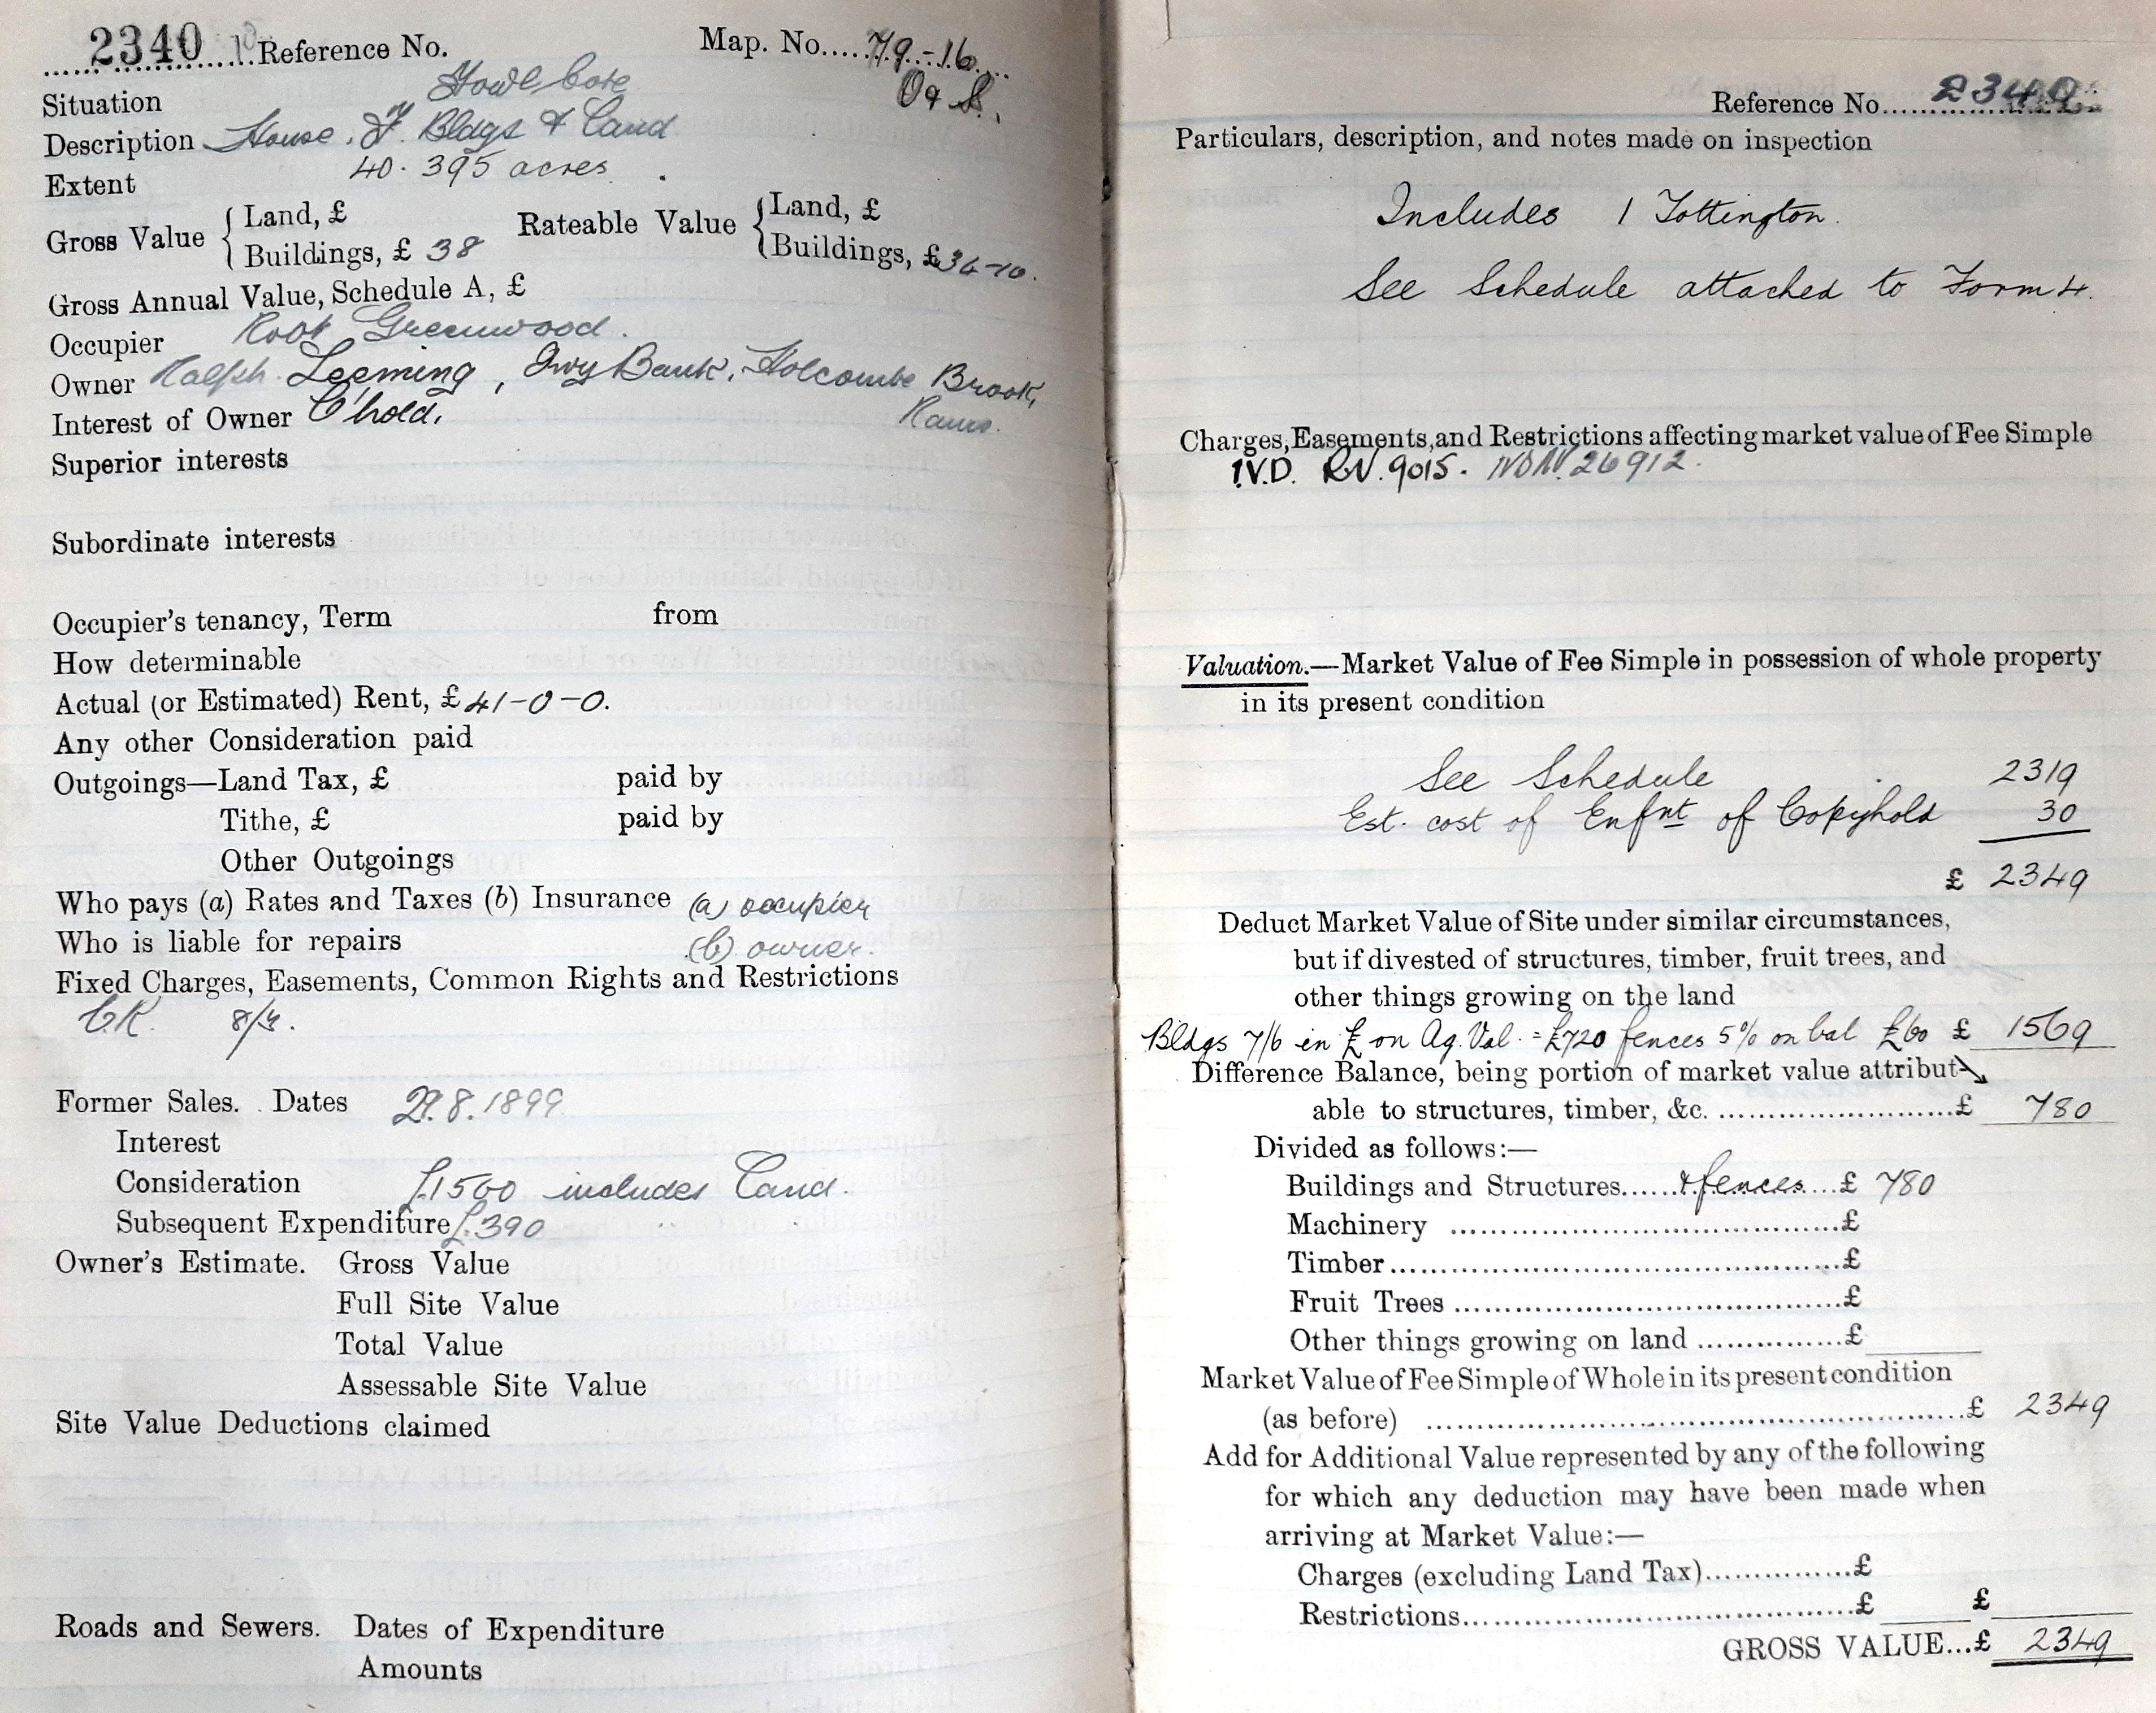 2340 Reference No. Map. No....79.-16...
Situation Fowl Cote O & S.
Description House, Fm Bldgs & Land
Extent 40.395 acres.
Gross Value { Land, £ Rateable Value { Land, £
Buildings, £ 38 Buildings, £34-10.
Gross Annual Value, Schedule A, £
Occupier Robt Greenwood.
Owner Ralph Leeming, Ivy Bank, Holcombe Brook,
Interest of Owner C'hold. Rams.
Superior interests
Subordinate interests
Occupier's tenancy, Term from
How determinable
Actual (or Estimated) Rent, £ 41-0-0.
Any other Consideration paid
Outgoings—Land Tax, £ paid by
Tithe, £ paid by
Other Outgoings
Who pays (a) Rates and Taxes (b) Insurance (a) occupier
Who is liable for repairs (b) owner.
Fixed Charges, Easements, Common Rights and Restrictions
C.R. 8/4.
Former Sales. Dates 29.8.1899
Interest
Consideration £1560 includes Land.
Subsequent Expenditure £390
Owner's Estimate. Gross Value
Full Site Value
Total Value
Assessable Site Value
Site Value Deductions claimed
Roads and Sewers. Dates of Expenditure
Amounts
Reference No. 2340
Particulars, description, and notes made on inspection
Includes 1 Tottington.
See Schedule attached to Form 4.
Charges, Easements, and Restrictions affecting market value of Fee Simple
I.V.D. RN.9015. 26912.
Valuation.—Market Value of Fee Simple in possession of whole property
in its present condition
See Schedule 2319
Est. cost of Enfnt of Copyhold 30
£ 2349
Deduct Market Value of Site under similar circumstances,
but if divested of structures, timber, fruit trees, and
other things growing on the land
Bldgs 7/6 in £ on Ag. Val. = £720 fences 5% on bal £60 £ 1569
Difference Balance, being portion of market value attribut-
able to structures, timber, &c. ........................£ 780
Divided as follows:—
Buildings and Structures......& fences....£ 780
Machinery ........................................£
Timber..............................................£
Fruit Trees .......................................£
Other things growing on land ...............£
Market Value of Fee Simple of Whole in its present condition
(as before) .......................................................£ 2349
Add for Additional Value represented by any of the following
for which any deduction may have been made when
arriving at Market Value:—
Charges (excluding Land Tax)...............£
Restrictions..........................................£ £
GROSS VALUE...£ 2349